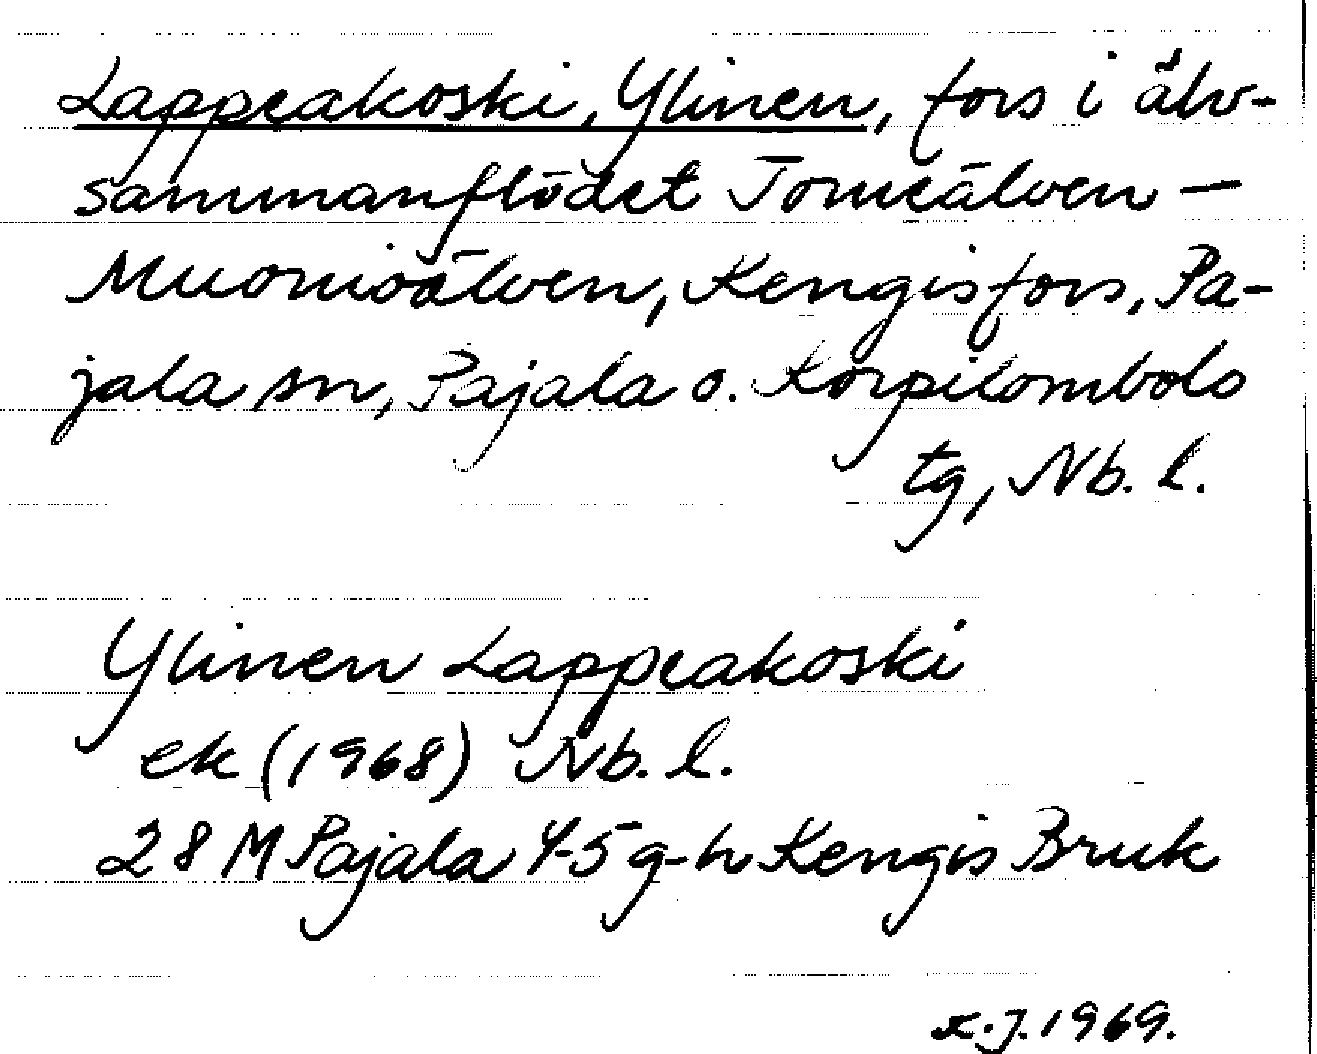 Lappeakoski, Ylinen, fors i älv-
sammanflödet Torneälven —
Muonioälven, Kengisfors, Pa-
jala sn, Pajala o. Korpilombolo
tg, Nb. l.
Ylinen Lappeakoski
ek (1968) Nb. l.
28 M Pajala 4-5 g-h Kengis Bruk
K.J. 1969.